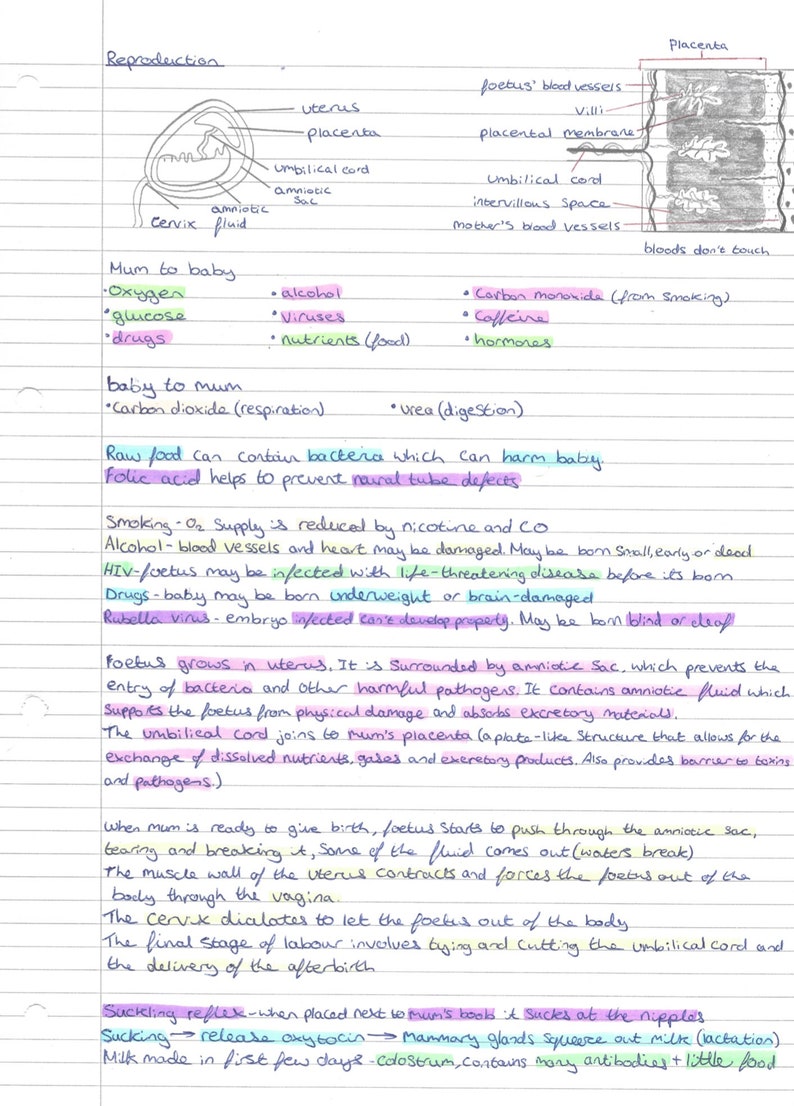 Reproduction
uterus
placenta
umbilical cord
amniotic
sac
amniotic
fluid
cervix
Placenta
foetus' blood vessels
villi
placental membrane
umbilical cord
intervillous space
mother's blood vessels
bloods don't touch
Mum to baby
•Oxygen •alcohol •Carbon monoxide (from smoking)
•glucose •Viruses •Caffeine
•drugs •nutrients (food) •hormones
baby to mum
•Carbon dioxide (respiration) •urea (digestion)
Raw food can contain bacteria which can harm baby.
Folic acid helps to prevent naural tube defects
Smoking - O₂ supply is reduced by nicotine and CO
Alcohol - blood vessels and heart may be damaged. May be born small, early or dead
HIV - foetus may be infected with life-threatening disease before its born
Drugs - baby may be born underweight or brain-damaged
Rubella virus - embryo infected can't develop properly. May be born blind or deaf
Foetus grows in uterus. It is surrounded by amniotic sac, which prevents the
entry of bacteria and other harmful pathogens. It contains amniotic fluid which
supports the foetus from physical damage and absorbs excretory materials.
The umbilical cord joins to mum's placenta (a plate-like structure that allows for the
exchange of dissolved nutrients, gases and excretory products. Also provides barrier to toxins
and pathogens.)
When mum is ready to give birth, foetus starts to push through the amniotic sac,
tearing and breaking it, some of the fluid comes out (waters break)
The muscle wall of the uterus contracts and forces the foetus out of the
body through the vagina.
The cervix dialates to let the foetus out of the body
The final stage of labour involves tying and cutting the umbilical cord and
the delivery of the afterbirth
Suckling reflex - when placed next to mum's boob it sucks at the nipples
Sucking → release oxytocin → Mammary glands squeeze out milk (lactation)
Milk made in first few days - colostrum, contains many antibodies + little food